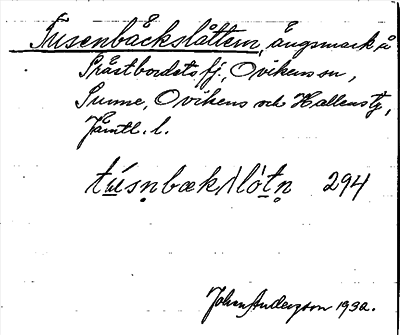 Tusenbäckslåtten, ängsmark å
Prästbordets fj., Ovikens sn,
Sunne, Ovikens och Hallens tg,
Jämtl. l.
294
Johan Anderzson 1932.